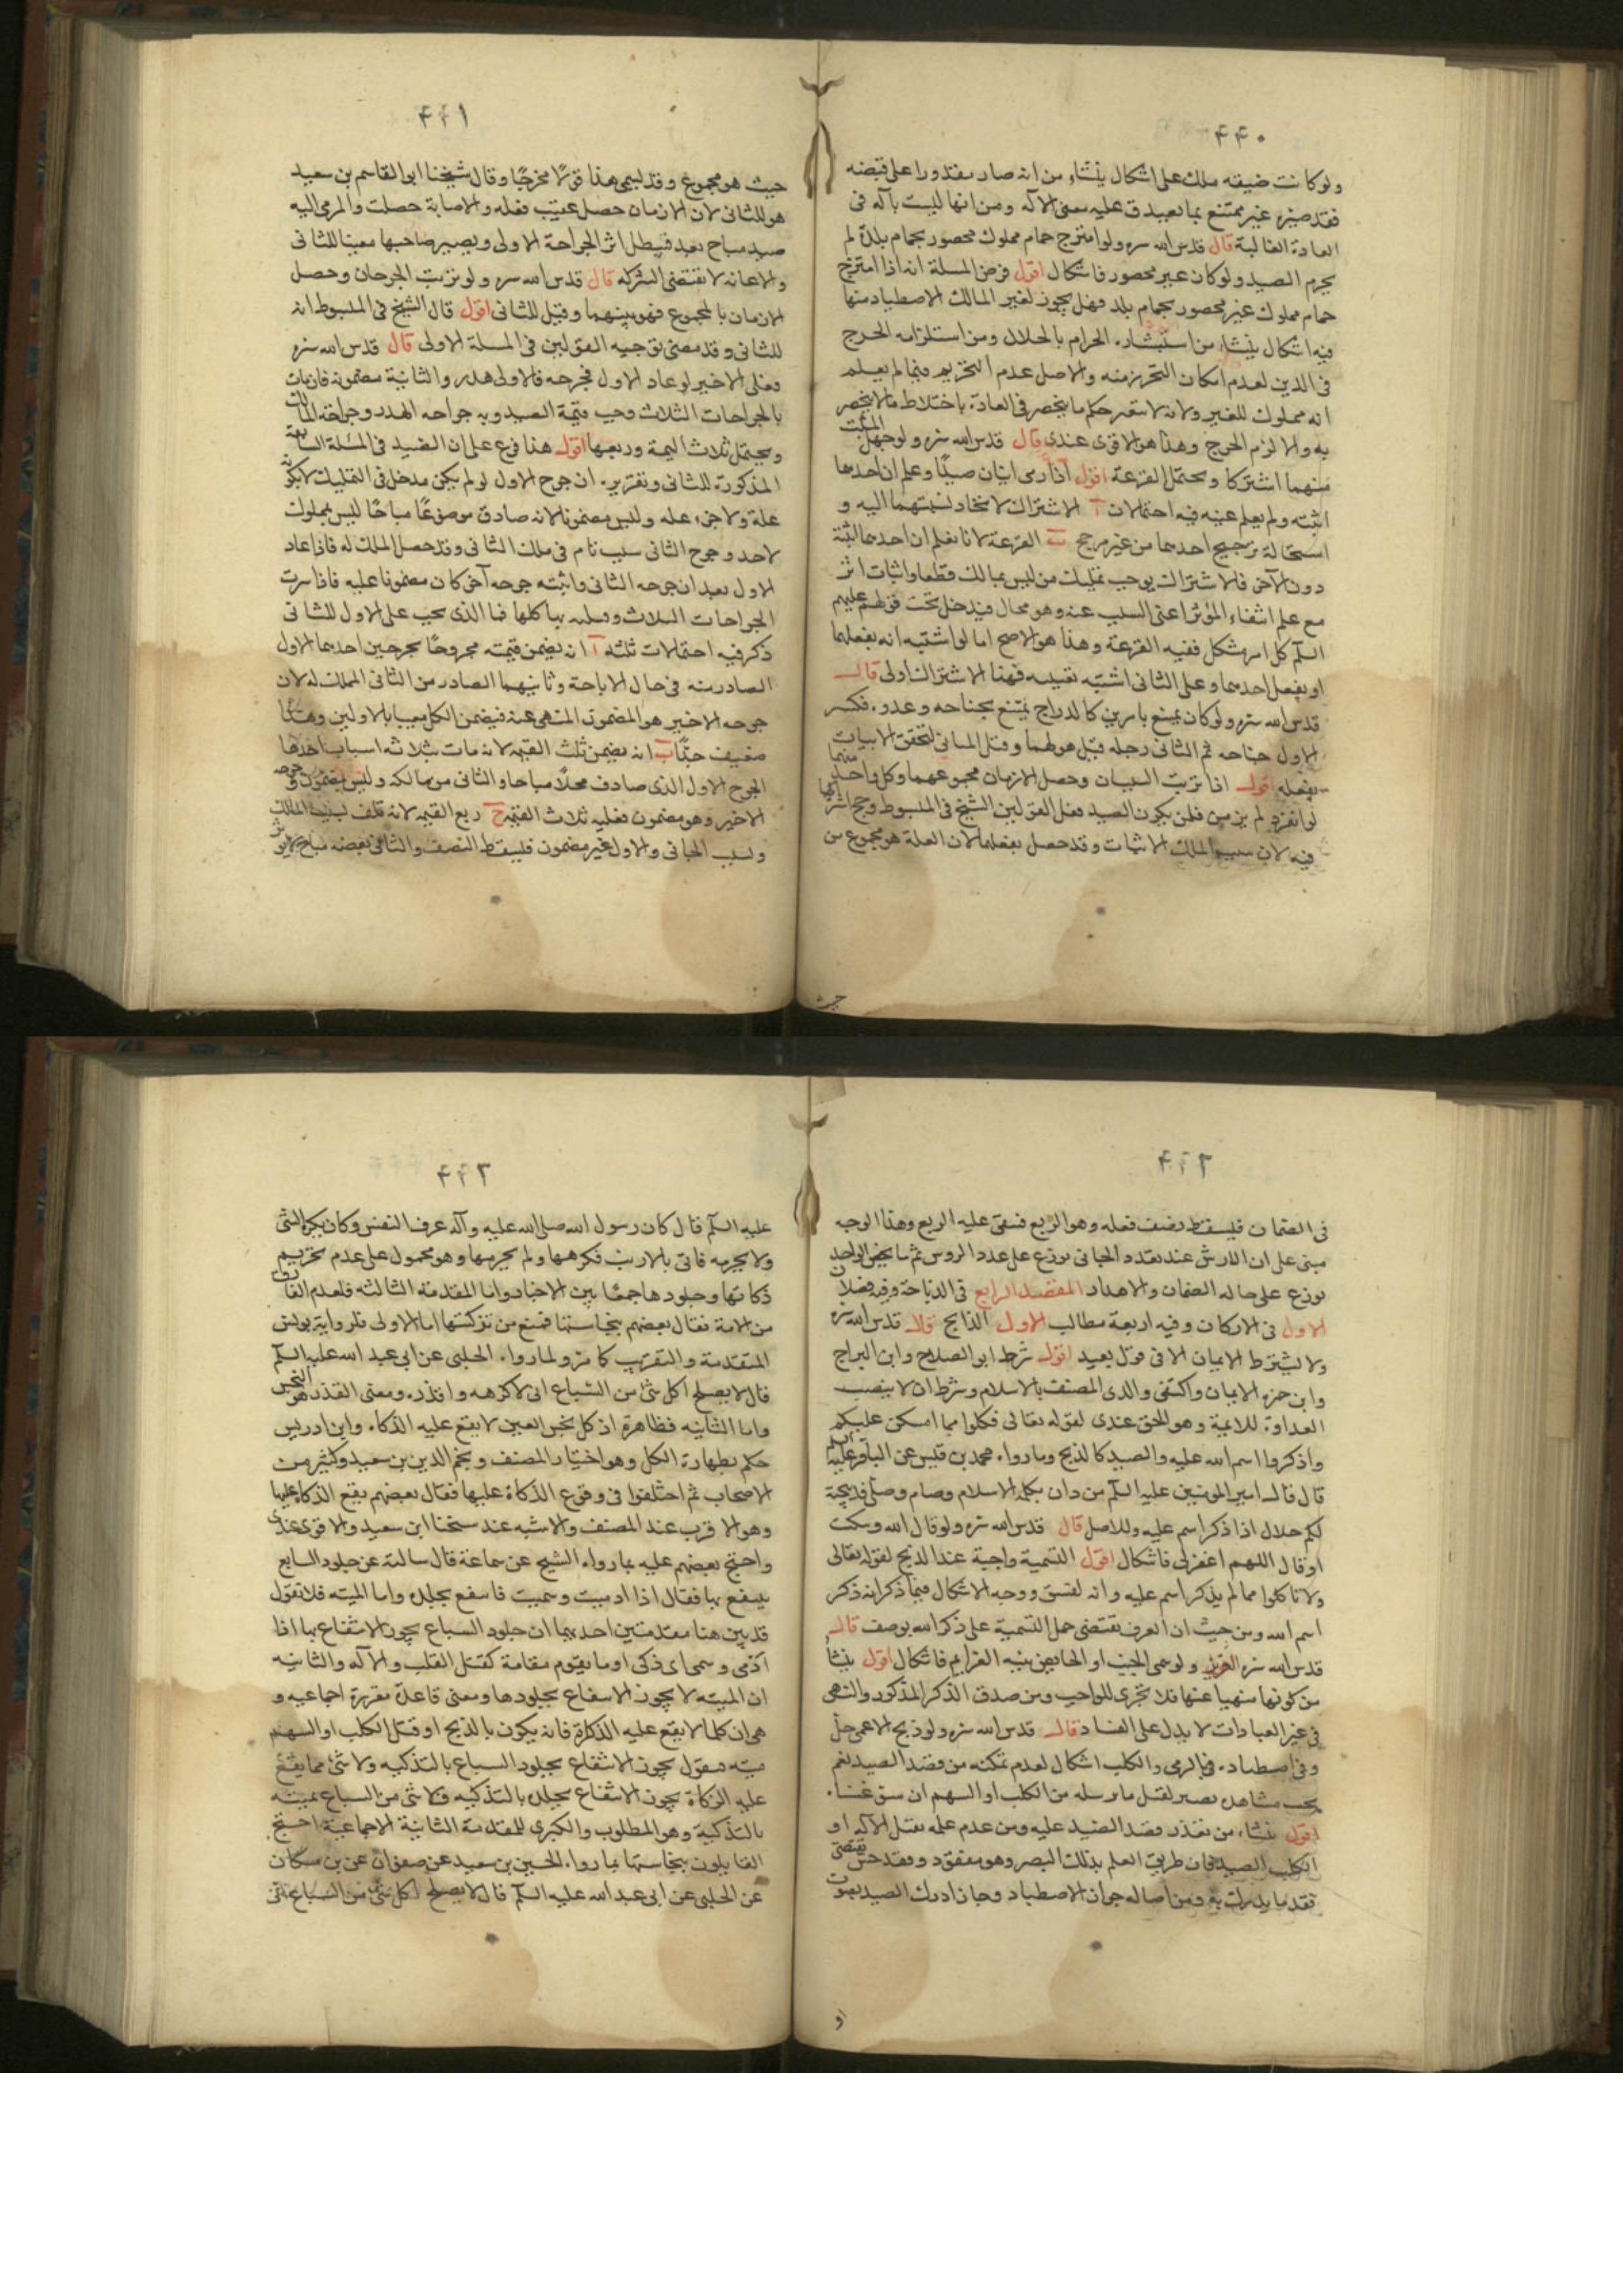 ۴۴۰
ولو كانت ضيقه ملك على اشكال ينشاء من انه صار مقدورا على قبضه
فقد صيره غير ممتنع بما يصدق عليه معنى الآله ومن انها ليست بآله فى
العادة الغالبة قال قدس الله سره ولو امتزج حمام مملوك محصور بحمام بلدة لم
يحرم الصيد ولو كان غير محصور فاشكال اقول فرض المسلة انه اذا امتزج
حمام مملوك غير محصور بحمام بلد فهل يجوز لغير المالك الاصطياد منها
فيه اشكال ينشاء من استبشاره الحرام بالحلال ومن استلزامه الحرج
فى الدين لعدم امكان التحرز منه والاصل عدم التحريم فيما لم يعلم
انه مملوك للغير ولانه لا يتغير حكم ما ينحصر فى العادة باختلاط ما لا ينحصر
به والا لزم الحرج وهذا هو الاقوى عندى قال قدس الله سره ولو جهل المثبت
منهما اشتركا ويحتمل القرعة اقول اذا رمى اثنان صيدًا وعلم ان احدهما
اثبته ولم يعلم عينه فيه احتمالان آ الاشتراك لاتحاد نسبتهما اليه و
استحالة ترجيح احدهما من غير مرجح ب القرعة لانا نعلم ان احدهما اثبته
دون الآخر فالاشتراك يوجب تمليك من ليس بمالك قطعا واثبات اثر
مع علم انتفاء المؤثر اعنى السبب عنه وهو محال فيدخل تحت قولهم عليهم
السلم كل امر مشكل ففيه القرعة وهذا هو الاصح اما لو اشتبه انه بفعلهما
او بفعل احدهما وعلى الثانى اشتبه تعيينه فهنا الاشتراك اولى قال
قدس الله سره ولو كان يمتنع بامرين كالدراج يمتنع بجناحه وعدوه فكسر
الاول جناحه ثم الثانى رجله قيل هو لهما وقيل للثانى لتحقق الاثبات
بفعله اقول اذا ترتب السببان وحصل الازمان بمجموعهما وكل واحد منهما
لو انفرد لم يزمن فلمن يكون الصيد فعلى القولين للشيخ فى المبسوط وجح اشتراكهما
فيه لان سبب الملك الاثبات وقد حصل بفعلهما لان العلة هو مجموع من
حيث
۴۴۱
حيث هو مجموع وقد ليسمى هذا قولا مخرجًا وقال شيخنا ابو القاسم بن سعيد
هو للثانى لان الازمان حصل عقيب فعله والاصابة حصلت والمرمى اليه
صيد مباح بعد فيبطل اثر الجراحة الاولى ويصير صاحبها معينا للثانى
والاعانه لا تقتضى الشركه قال قدس الله سره ولو ترتب الجرحان وحصل
الازمان بالمجموع فهو بينهما وقيل للثانى اقول قال الشيخ فى المبسوط انه
للثانى وقد مضى توجيه القولين فى المسلة الاولى قال قدس الله سره
فعلى الاخير لو عاد الاول فجرحه فالاولى هدر والثانية مضمونه فان مات
بالجراحات الثلاث وجب قيمة الصيد وبه جراحه الهدر وجراحه المالك
ويحتمل ثلاث القيمة وربعها اقول هذا فرع على ان الصيد فى المسلة السابقة
المذكورة للثانى وتقريره ان جرح الاول لو لم يكن مدخل فى التمليك لا بكونه
علة ولا جزء علة وليس مضمونا لانه صادف موضوعًا مباحًا ليس بمملوك
لاحد وجرح الثانى سبب تام فى ملك الثانى وقد حصل الملك له فاذا عاد
الاول بعد ان جرحه الثانى واثبته جرحه آخر كان مضمونا عليه فاذا سرت
الجراحات الثلاث وتلف بها كلها فما الذى يجب على الاول للثانى
ذكر فيه احتمالات ثلثه آ انه يضمن قيمته مجروحًا بجرحين احدهما الاول
الصادر منه فى حال الاباحة وثانيهما الصادر من الثانى المملك له لان
جرحه الاخير هو المضمون المنهى عنه فيضمن الكل معيبا بالاولين وهذا
ضعيف جدًا ب انه يضمن ثلث القيمه لانه مات بثلاثه اسباب احدها
الجرح الاول الذى صادف محلا مباحا والثانى من مالكه وليس بمضمون وجرحه
الاخير وهو مضمون فعليه ثلاث القيمة ج ربع القيمه لانه تلف بسبب المالك
وسبب الجانى والاول غير مضمون فليسقط النصف والثانى بعضه مباح لا يؤثر
۴۴۲
فى الضمان فليسقط نصف فعله وهو الربع فيبقى عليه الربع وهذا الوجه
مبنى على ان الارش عند تعدد الجانى يوزع على عدد الروس ثم ما يخص الواحد
يوزع على حاله الضمان والاهدار المقصد الرابع فى الذباحة وفيه فصلان
الاول فى الاركان وفيه اربعة مطالب الاول الذابح قال قدس الله سره
ولا يشترط الايمان الا فى قول بعيد اقول شرط ابو الصلاح وابن البراج
وابن حمزه الايمان واكتفى والدى المصنف بالاسلام وشرط ان لا ينصب
العداوة للائمة وهو الحق عندى لقوله تعالى فكلوا مما امسكن عليكم
واذكروا اسم الله عليه والصيد كالذبح وما رواه محمد بن قيس عن الباقر عليه السلم
قال قال امير المومنين عليه السلم من دان بكلمة الاسلام وصام وصلى فذبيحته
لكم حلال اذا ذكر اسم عليه وللاصل قال قدس الله سره ولو قال الله وسكت
او قال اللهم اغفر لى فاشكال اقول التسمية واجبة عند الذبح لقوله تعالى
ولا تاكلوا مما لم يذكر اسم عليه وانه لفسق ووجه الاشكال فيما ذكر انه ذكر
اسم الله ومن حيث ان العرف يقتضى حمل التسمية على ذكر الله بوصف قال
قدس الله سره العزيز ولو سمى الجنب او الحائض بنيه العزايم فاشكال اقول ينشا
من كونها منهيا عنها فلا تجزى للواجب ومن صدق الذكر المذكور والنهى
فى غير العبادات لا يدل على الفساد قال قدس الله سره ولو ذبح الاعمى حل
وفى اصطياده فى بالرمى والكلب اشكال لعدم تمكنه من قصد الصيد نعم
يجب مشاهدة بصير لقتل ما يرسله من الكلب او السهم ان سوغناه
اقول ينشاء من تعذر قصد الصيد عليه ومن عدم علمه بقتل الآله او
الكلب الصيد فان طريق العلم بذلك البصر وهو مفقود وفقد حس يقتضى
فقد ما يدرك به ومن اصاله جواز الاصطياد وجاز ادراك الصيد بصوت
و
۴۴۳
عليه السلم قال كان رسول الله صلى الله عليه وآله عزف النفس وكان يكره الشئ
ولا يحرمه فاتى بالارنب فكرهها ولم يحرمها وهو محمول على عدم تحريم
ذكاتها وجلودها جمعًا بين الاخبار واما المقدمة الثالثه فلعدم الفارق
من الامة فقال بعضهم بنجاستها فمنع من تزكيتها اما الاولى فلرواية يونس
المتقدمة والتقريب كما مر ولما رواه الحلبى عن ابى عبد الله عليه السلم
قال لا يصلح اكل شئ من السباع انى لاكرهه واقذره ومعنى القذر هو النجس
واما الثانيه فظاهرة اذ كل نجس العين لا يقع عليه الذكاه وابن ادريس
حكم بطهارة الكل وهو اختيار المصنف ونجم الدين بن سعيد وكثير من
الاصحاب ثم اختلفوا فى وقوع الذكاة عليها فقال بعضهم يقع الذكاة عليها
وهو الاقرب عند المصنف والاشبه عند شيخنا ابن سعيد والاقوى عندى
واحتج بعضهم عليه بما رواه الشيخ عن سماعة قال سالته عن جلود السباع
ينتفع بها فقال اذا رميت وسميت فانتفع بجلده واما الميته فلا فنقول
قد بين هنا مقدمتين احديهما ان جلود السباع يجوز الانتفاع بها اذا
رمى وسمى اى ذكى او ما يقوم مقامة كقتل الكلب والآله والثانيه
ان الميته لا يجوز الانتفاع بجلودها ومعنى قاعدة مقررة اجماعيه و
هى ان كلما لا يقع عليه الذكاة فانه يكون بالذبح او قتل الكلب او السهم
ميته فنقول يجوز الانتفاع بجلود السباع بالتذكيه ولا شئ مما يقع
عليه الزكاة يجوز الانتفاع بجلده بالتذكيه فلا شئ من السباع بميته
بالتذكية وهو المطلوب والكبرى للمقدمة الثانية الاجماعية احتج
القايلون بنجاستها بما رواه الحسين بن سعيد عن صفوان عن بن مسكان
عن الحلبى عن ابى عبد الله عليه السلم قال لا يصلح اكل شئ من السباع انى